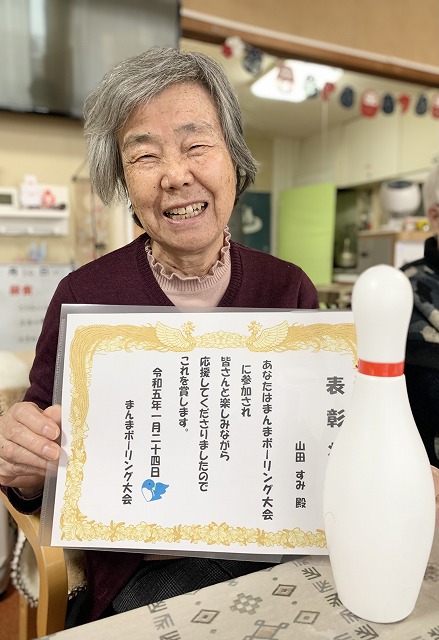 表彰
山田 すみ 殿
あなたはまんまボーリング大会
に参加され
皆さんと楽しみながら
応援してくださりましたので
これを賞します。
令和五年一月二十四日
まんまボーリング大会